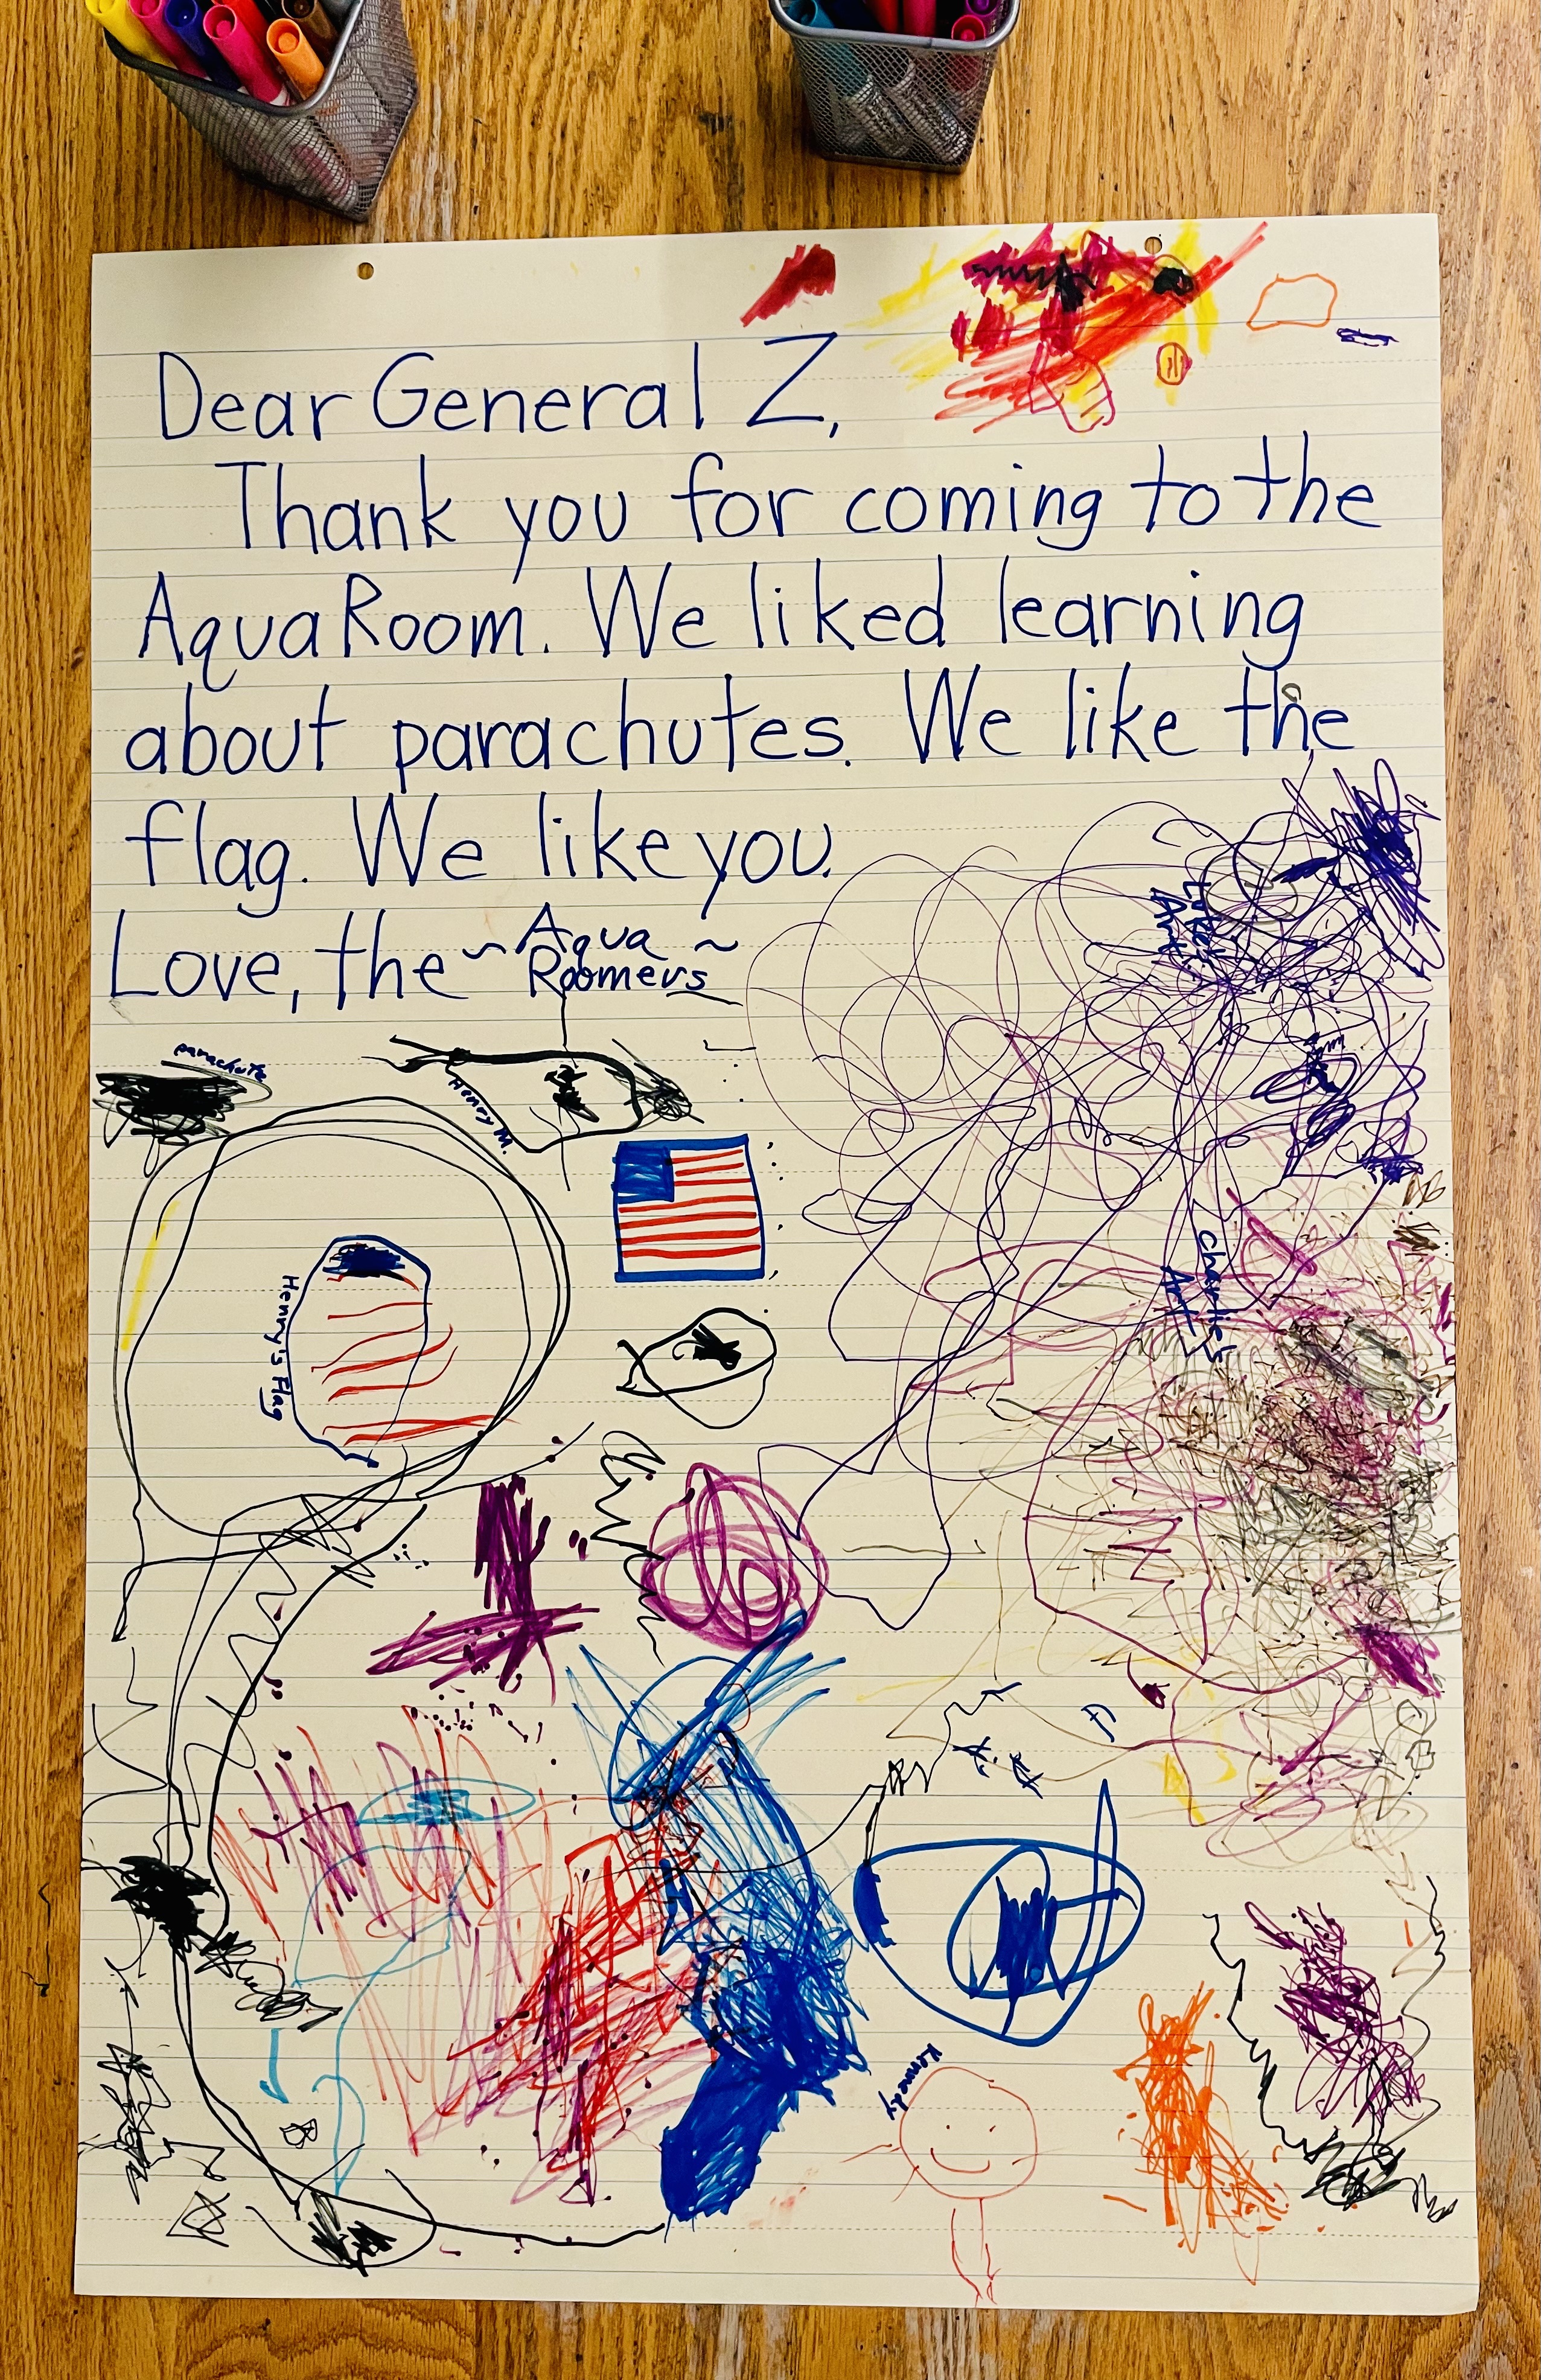 Dear General Z,
Thank you for coming to the
Aqua Room. We liked learning
about parachutes. We like the
flag. We like you.
Love, the ~ Aqua ~
Roomers
parachute
Henry M.
Henry's Flag
Art
Charlie's
Art
Kennedy